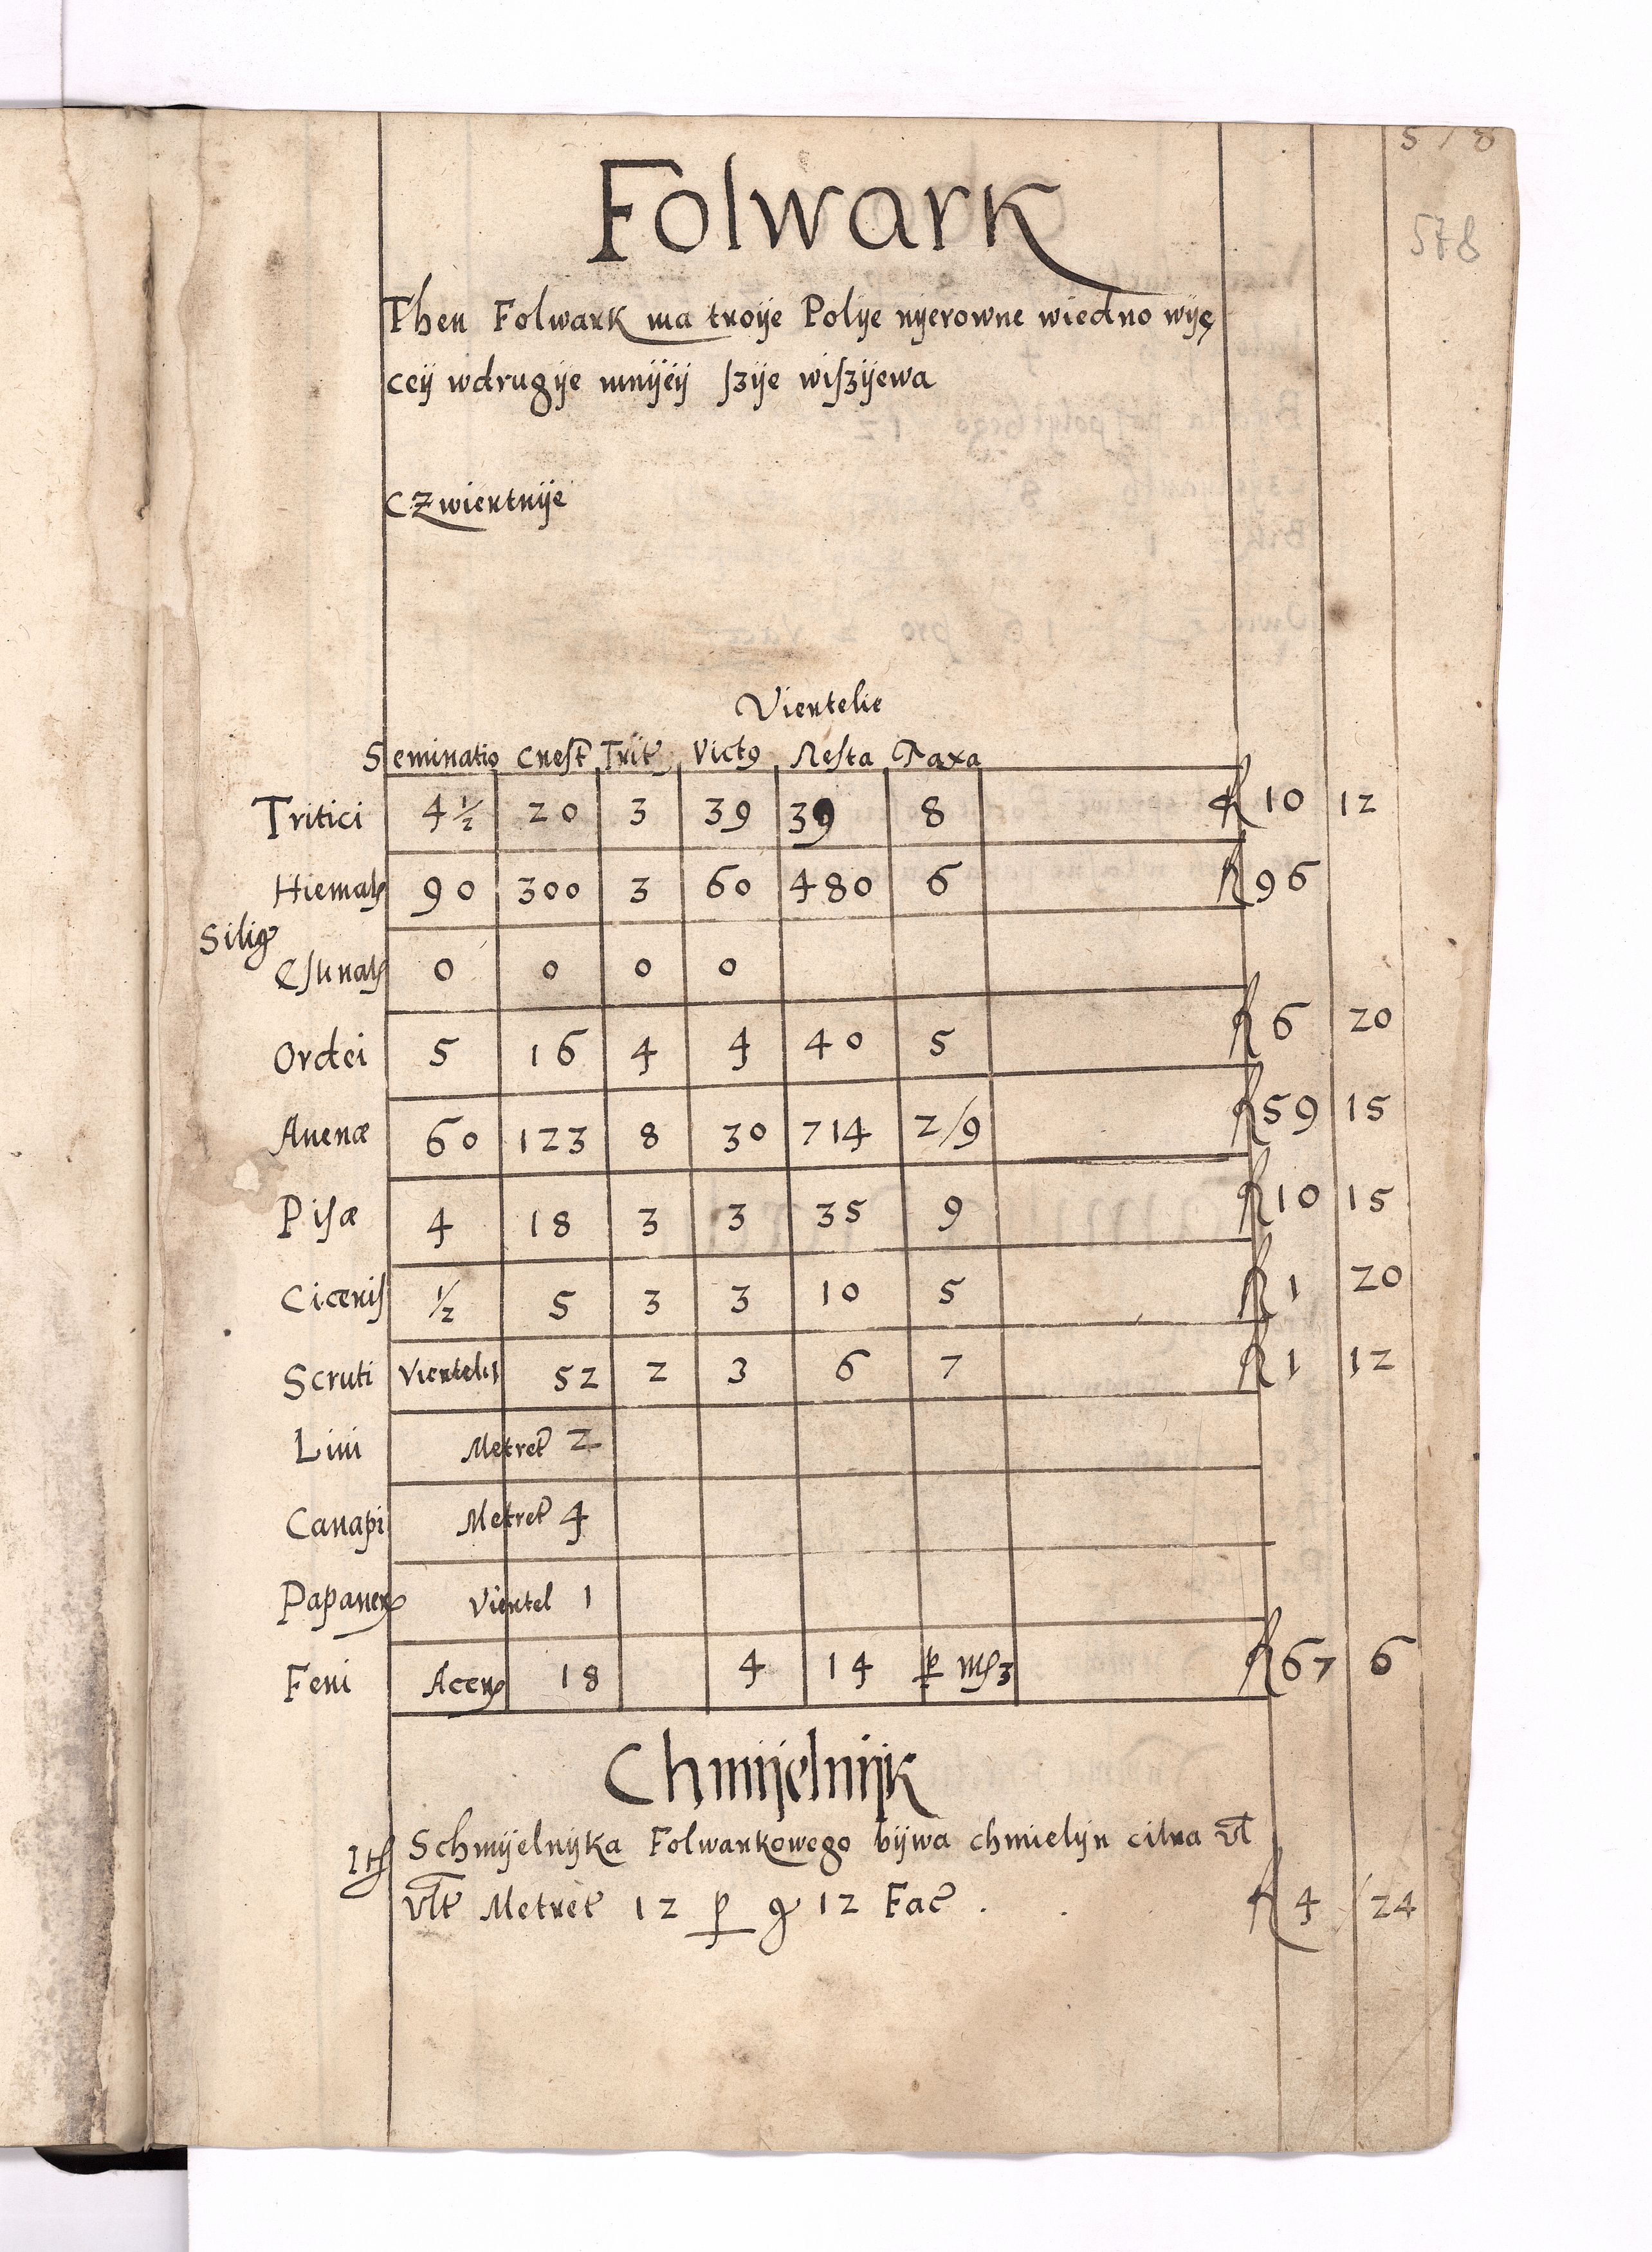 578
578
Folwark
Then Folwark ma troije Polije nijerowne wiedno wiję
ceij wdrugije mnijéij ſzije wiſzijewa
CZwiertnije
Viertelie
Seminatio Creſt Trit Victꝰ Reſta Taxa
Tritici 4½ 20 3 39 39 8 R 10 12
Hiemalꝭ 90 300 3 60 480 6 R 96
Silig
Eſtiualꝭ 0 0 0 0
Ordei 5 16 4 4 40 5 R 6 20
Auenæ 60 123 8 30 714 2/9 R 59 15
Piſæ 4 18 3 3 35 9 R 10 15
Ciceriſ ½ 5 3 3 10 5 R 1 20
Scruti Viertel 1 52 2 3 6 7 R 1 12
Lini Metret 2
Canapi Metret 4
Papauerꝭ Viertel 1
Feni Aceru 18 4 14 ꝑ mꝭ 3 R 67 6
Chmijelnijk
Itꝭ Schmijelnijka Folwarkowego bijwa chmielijn citra vl
vlt Metret 12 ꝑ gꝭ 12 Fac . R 4 24